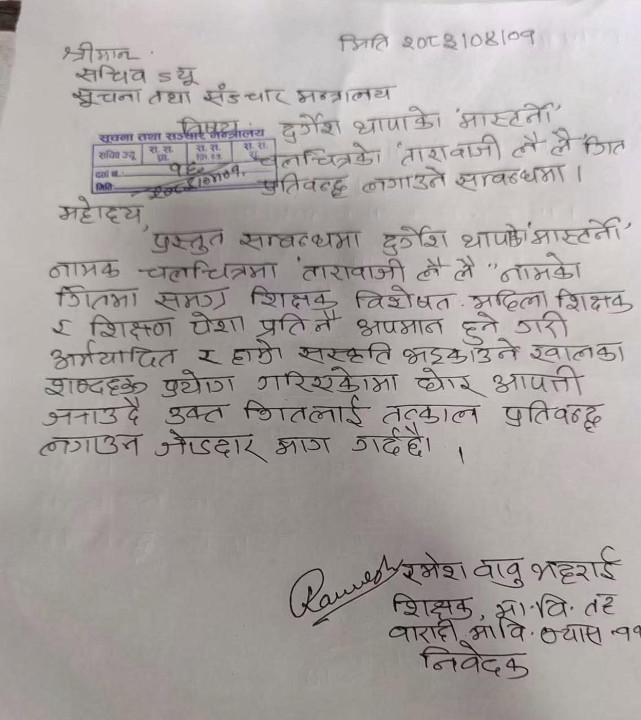 मिति २०८३।०४।०१
श्रीमान
सचिव ज्यू
सूचना तथा संञ्चार मन्त्रालय
विषय: दुर्गेश थापाको 'मास्टर्नी'
सूचना तथा सञ्चार मन्त्रालय
सचिव ज्यू रा.स. प्रा. रा.स. रा.स.
चलचित्रको 'ताराबाजी लै लै' गित
दर्ता नं. १६
मिति
प्रतिवन्द्ध लगाउने सम्वन्धमा ।
महोदय,
प्रस्तुत सम्वन्धमा दुर्गेश थापाको 'मास्टर्नी'
नामक चलचित्रमा 'ताराबाजी लै लै" नामको
गितमा समग्र शिक्षक विशेषत महिला शिक्षक
र शिक्षण पेशा प्रति नै अपमान हुने गरी
अर्मयादित र हाम्रो संस्कृति भड्काउने खालका
शव्दहरु प्रयोग गरिएकोमा घोर आपत्ती
जनाउदै उक्त गितलाई तत्काल प्रतिवन्द्ध
लगाउन जोडदार माग गर्दछौ। ।
Ramesh रमेश वावु भट्टराई
शिक्षक, मा.वि. तह
वाराही मा.वि. व्यास ११
निवेदक